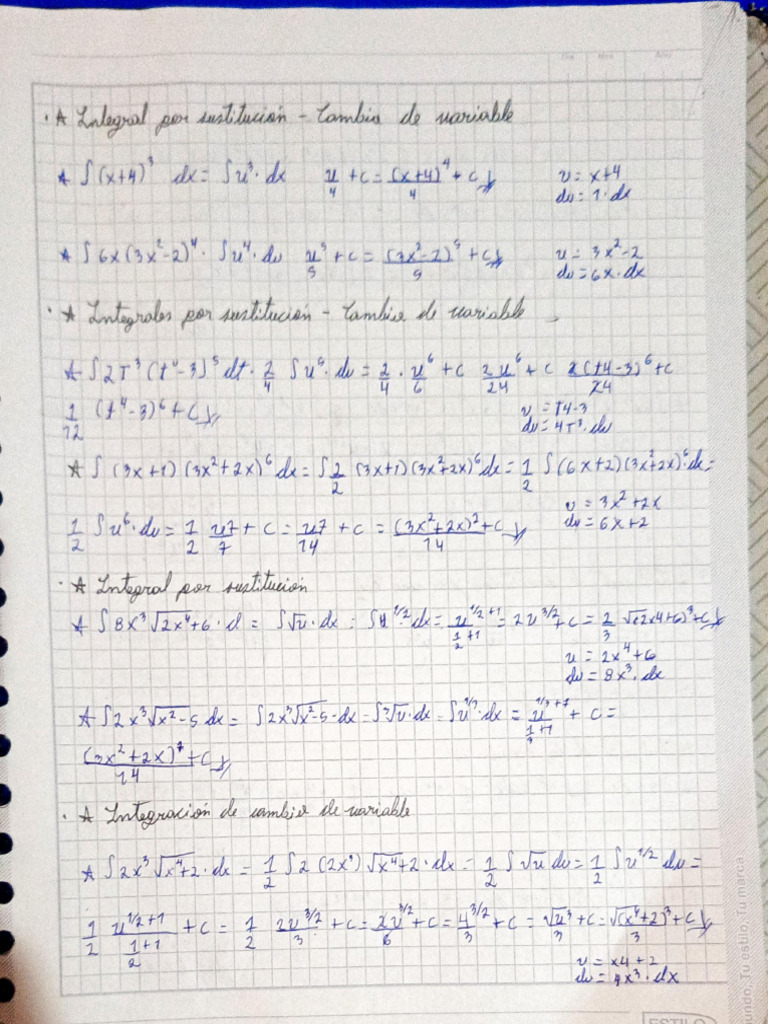 · A Integral por sustitución - Cambio de variable
A ∫(x+4)³ dx = ∫u³·dx u/4 + c = (x+4)⁴/4 + c
u = x+4
du = 1·dx
A ∫6x(3x²-2)⁴· ∫u⁴·du u⁵/5 + c = (3x²-2)⁵/5 + c
u = 3x²-2
du = 6x·dx
· A Integrales por sustitución - Cambio de variable
A ∫2T³(t⁴-3)⁵ dt · 2/4 ∫u⁵·du = 2/4 · u⁶/6 + c 2u⁶/24 + c 2(t4-3)⁶/24 + c
1/12 (t⁴-3)⁶ + c
u = T4-3
du = 4T³·du
A ∫(3x+1)(3x²+2x)⁶ dx = ∫2/2 (3x+1)(3x²+2x)⁶ dx = 1/2 ∫(6x+2)(3x²+2x)⁶·dx =
u = 3x²+2x
du = 6x+2
1/2 ∫u⁶·du = 1/2 u7/7 + c = u7/14 + c = (3x²+2x)⁷/14 + c
· A Integral por sustitución
A ∫8x³√2x⁴+6 · d = ∫√u·dx = ∫u^1/2·dx = u^1/2+1/1/2+1 = 2u^3/2 + c = 2/3 √(2x4+6)³ + c
u = 2x⁴+6
du = 8x³·dx
A ∫2x³√x²-5 dx = ∫2x³√x²-5·dx = ∫³√u·dx = ∫u^1/3·dx = u^1/3+1/1/3+1 + c =
(3x²+2x)⁷/14 + c
· A Integración de cambio de variable
A ∫2x³√x⁴+2·dx = 1/2 ∫2(2x³)√x⁴+2·dx = 1/2 ∫√u du = 1/2 ∫u^1/2 du =
1/2 u^1/2+1/1/2+1 + c = 1/2 2u^3/2/3 + c = 2u^3/2/6 + c = u^3/2/3 + c = √u³/3 + c = √(x⁴+2)³/3 + c
u = x4+2
du = 4x³·dx
undo. Tu estilo, tu marca
ESTILO